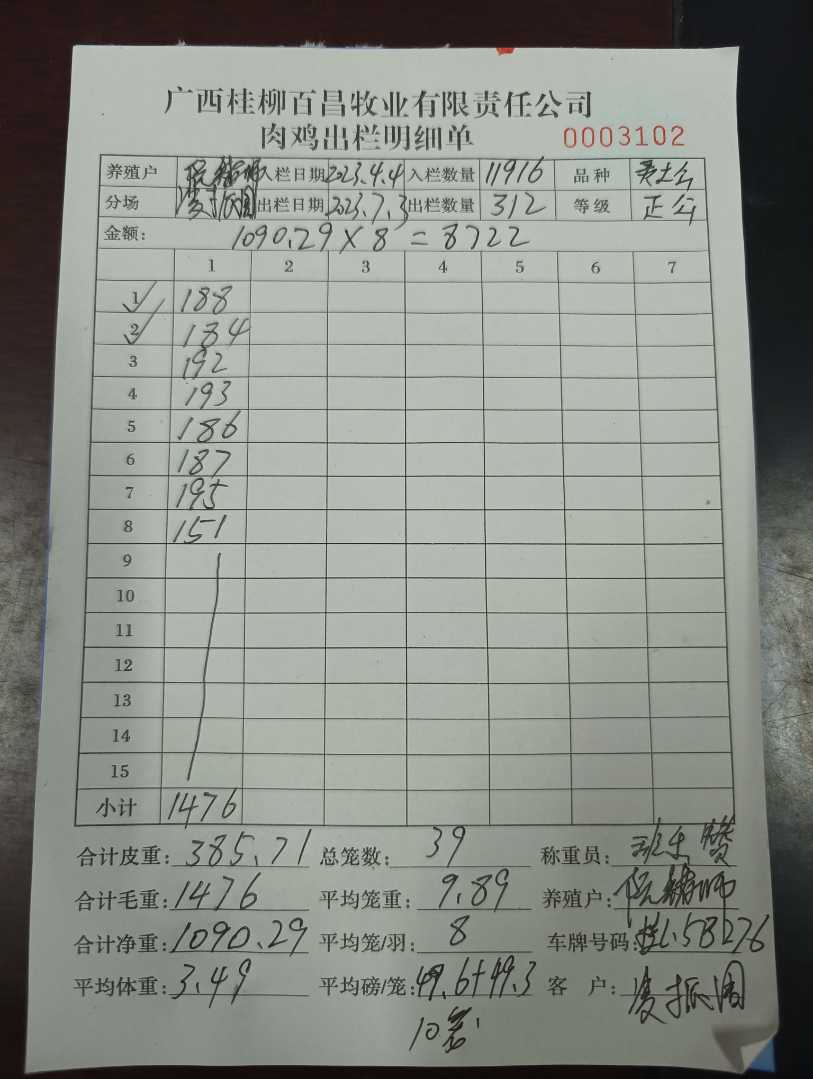 广西桂柳百昌牧业有限责任公司
肉鸡出栏明细单 0003102
养殖户 阮辅师 入栏日期 2023.4.4 入栏数量 11916 品种
分场 出栏日期 2023.7.3 出栏数量 312 等级 正公
金额: 1090.29×8=8722
1 2 3 4 5 6 7
1 188
2 184
3 192
4 193
5 186
6 187
7 195
8 151
9
10
11
12
13
14
15
小计 1476
合计皮重: 385.71 总笼数: 39 称重员:
合计毛重: 1476 平均笼重: 9.89 养殖户: 阮辅师
合计净重: 1090.29 平均笼/羽: 8 车牌号码: 桂L5B276
平均体重: 3.49 平均磅/笼: 49.6+49.3 客 户:
10笼